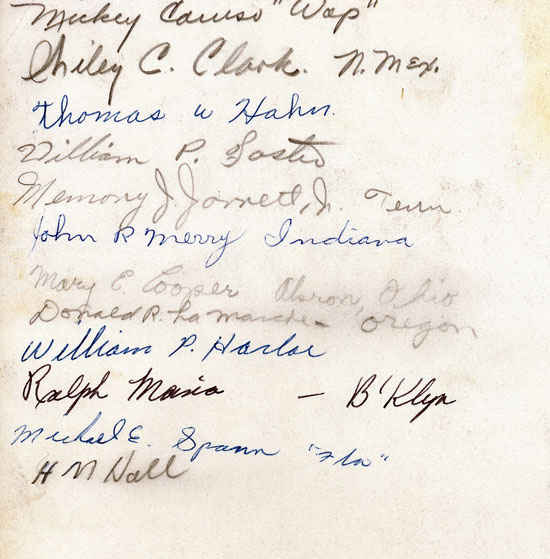 Mickey Caruso "Wop"
Shiley C. Clark. N. Mex.
Thomas W Hahn.
William P. Foster
Memory J Jarrett, Jr. Tenn
John R Merry Indiana
Mary E. Cooper Akron, Ohio
Donald R. La Marche - Oregon
William P. Harlor
Ralph Maria — B'Klyn
Michael E. Spann "Fla"
H M Hall